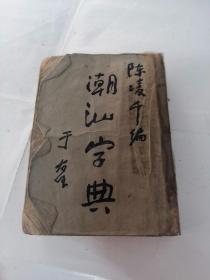 陈凌千编
潮汕字典
于右